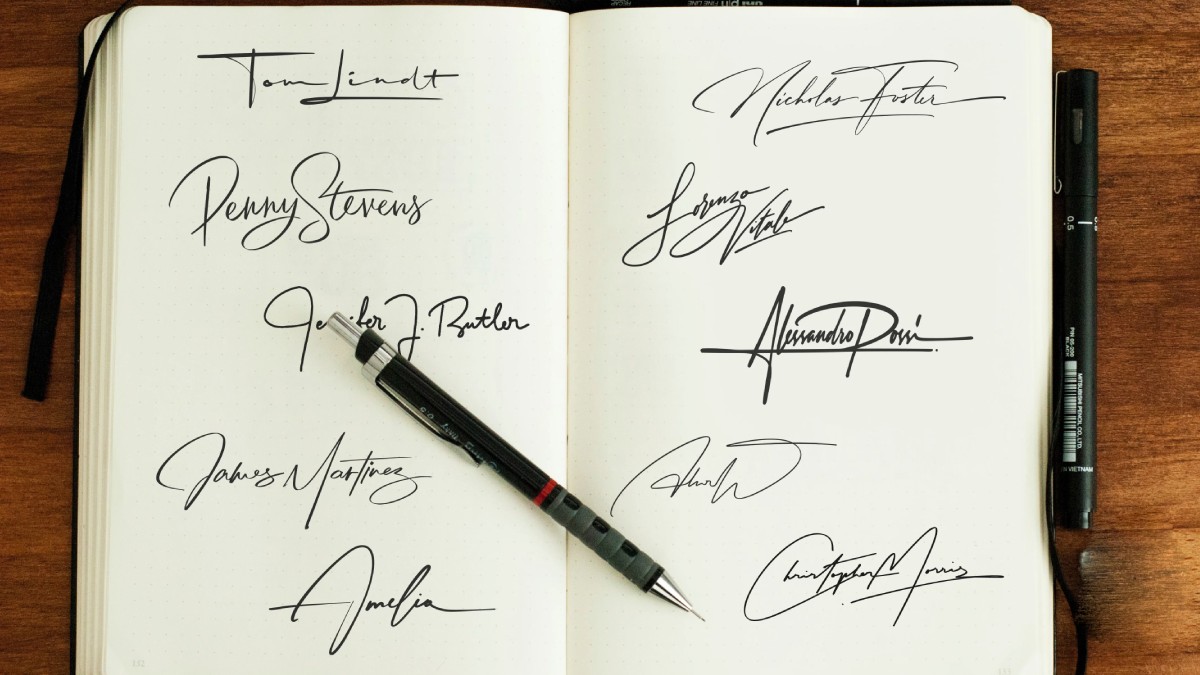 Tom Lindt
Penny Stevens
Jennifer J. Butler
James Martinez
Amelia
Nicholas Foster
Lorenzo
Vitale
Alessandro Rossi
Christopher Morris
0.5
PIN 05-200
BLACK
MITSUBISHI PENCIL CO., LTD.
IN VIETNAM
0.5
132